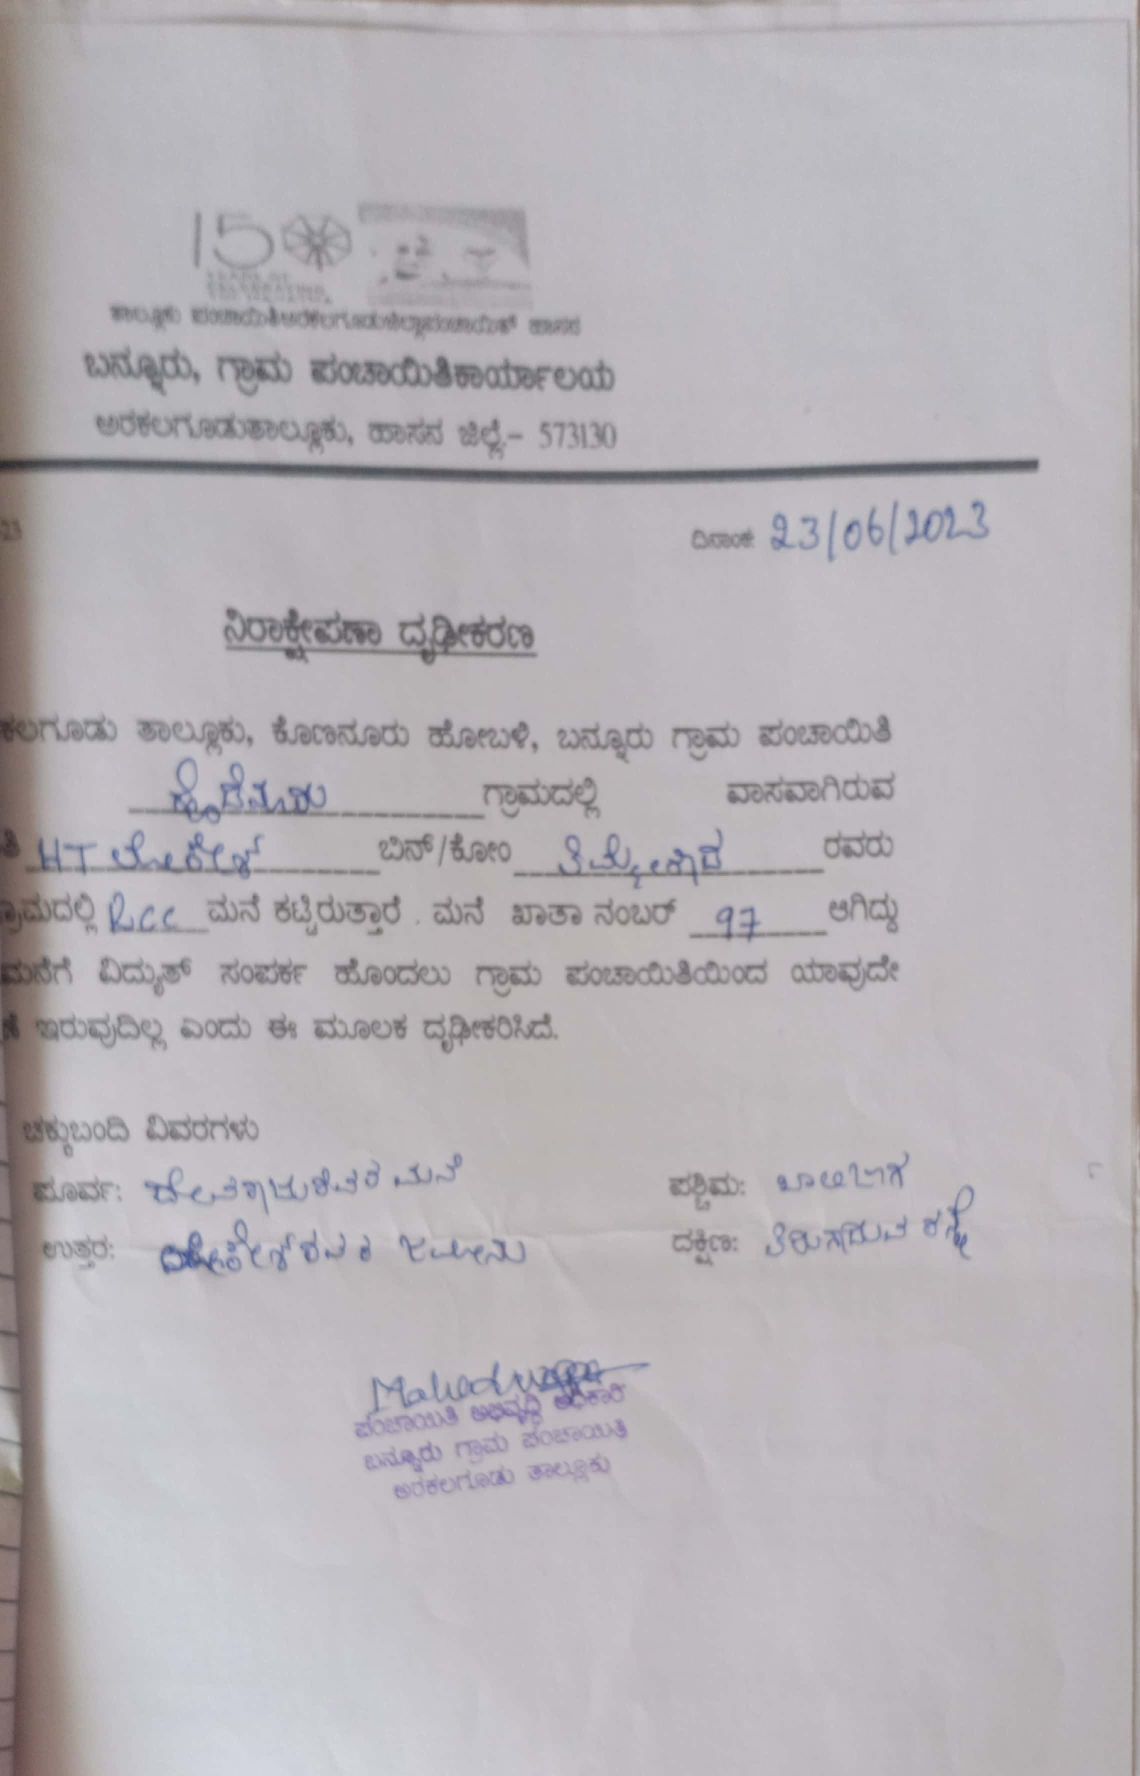 150
ತಾಲ್ಲೂಕು ಪಂಚಾಯಿತಿಅರಕಲಗೂಡುಜಿಲ್ಲಾಪಂಚಾಯಿತ್ ಹಾಸನ
ಬನ್ನೂರು, ಗ್ರಾಮ ಪಂಚಾಯಿತಿಕಾರ್ಯಾಲಯ
ಅರಕಲಗೂಡುತಾಲ್ಲೂಕು, ಹಾಸನ ಜಿಲ್ಲೆ.- 573130
23 ದಿನಾಂಕ: 23/06/2023
ನಿರಾಕ್ಷೇಪಣಾ ದೃಢೀಕರಣ
ಕಲಗೂಡು ತಾಲ್ಲೂಕು, ಕೊಣನೂರು ಹೋಬಳಿ, ಬನ್ನೂರು ಗ್ರಾಮ ಪಂಚಾಯಿತಿ
ಗ್ರಾಮದಲ್ಲಿ ವಾಸವಾಗಿರುವ
ತಿ HT ಲೋಕೇಶ್ ಬಿನ್/ಕೋಂ ರವರು
ಗ್ರಾಮದಲ್ಲಿ RCC ಮನೆ ಕಟ್ಟಿರುತ್ತಾರೆ . ಮನೆ ಖಾತಾ ನಂಬರ್ 97 ಆಗಿದ್ದು
ಮನೆಗೆ ವಿದ್ಯುತ್ ಸಂಪರ್ಕ ಹೊಂದಲು ಗ್ರಾಮ ಪಂಚಾಯಿತಿಯಿಂದ ಯಾವುದೇ
ಇರುವುದಿಲ್ಲ ಎಂದು ಈ ಮೂಲಕ ದೃಢೀಕರಿಸಿದೆ.
ಚಕ್ಕುಬಂದಿ ವಿವರಗಳು
ಪೂರ್ವ: ಮನೆ ಪಶ್ಚಿಮ: ಖಾಲಿಜಾಗ
ಉತ್ತರ: ಲೋಕೇಶ್ ರವರ ಜಮೀನು ದಕ್ಷಿಣ: ತಿರುಗಾಡುವ ರಸ್ತೆ
ಪಂಚಾಯಿತಿ ಅಭಿವೃದ್ಧಿ ಅಧಿಕಾರಿ
ಬನ್ನೂರು ಗ್ರಾಮ ಪಂಚಾಯಿತಿ
ಅರಕಲಗೂಡು ತಾಲ್ಲೂಕು